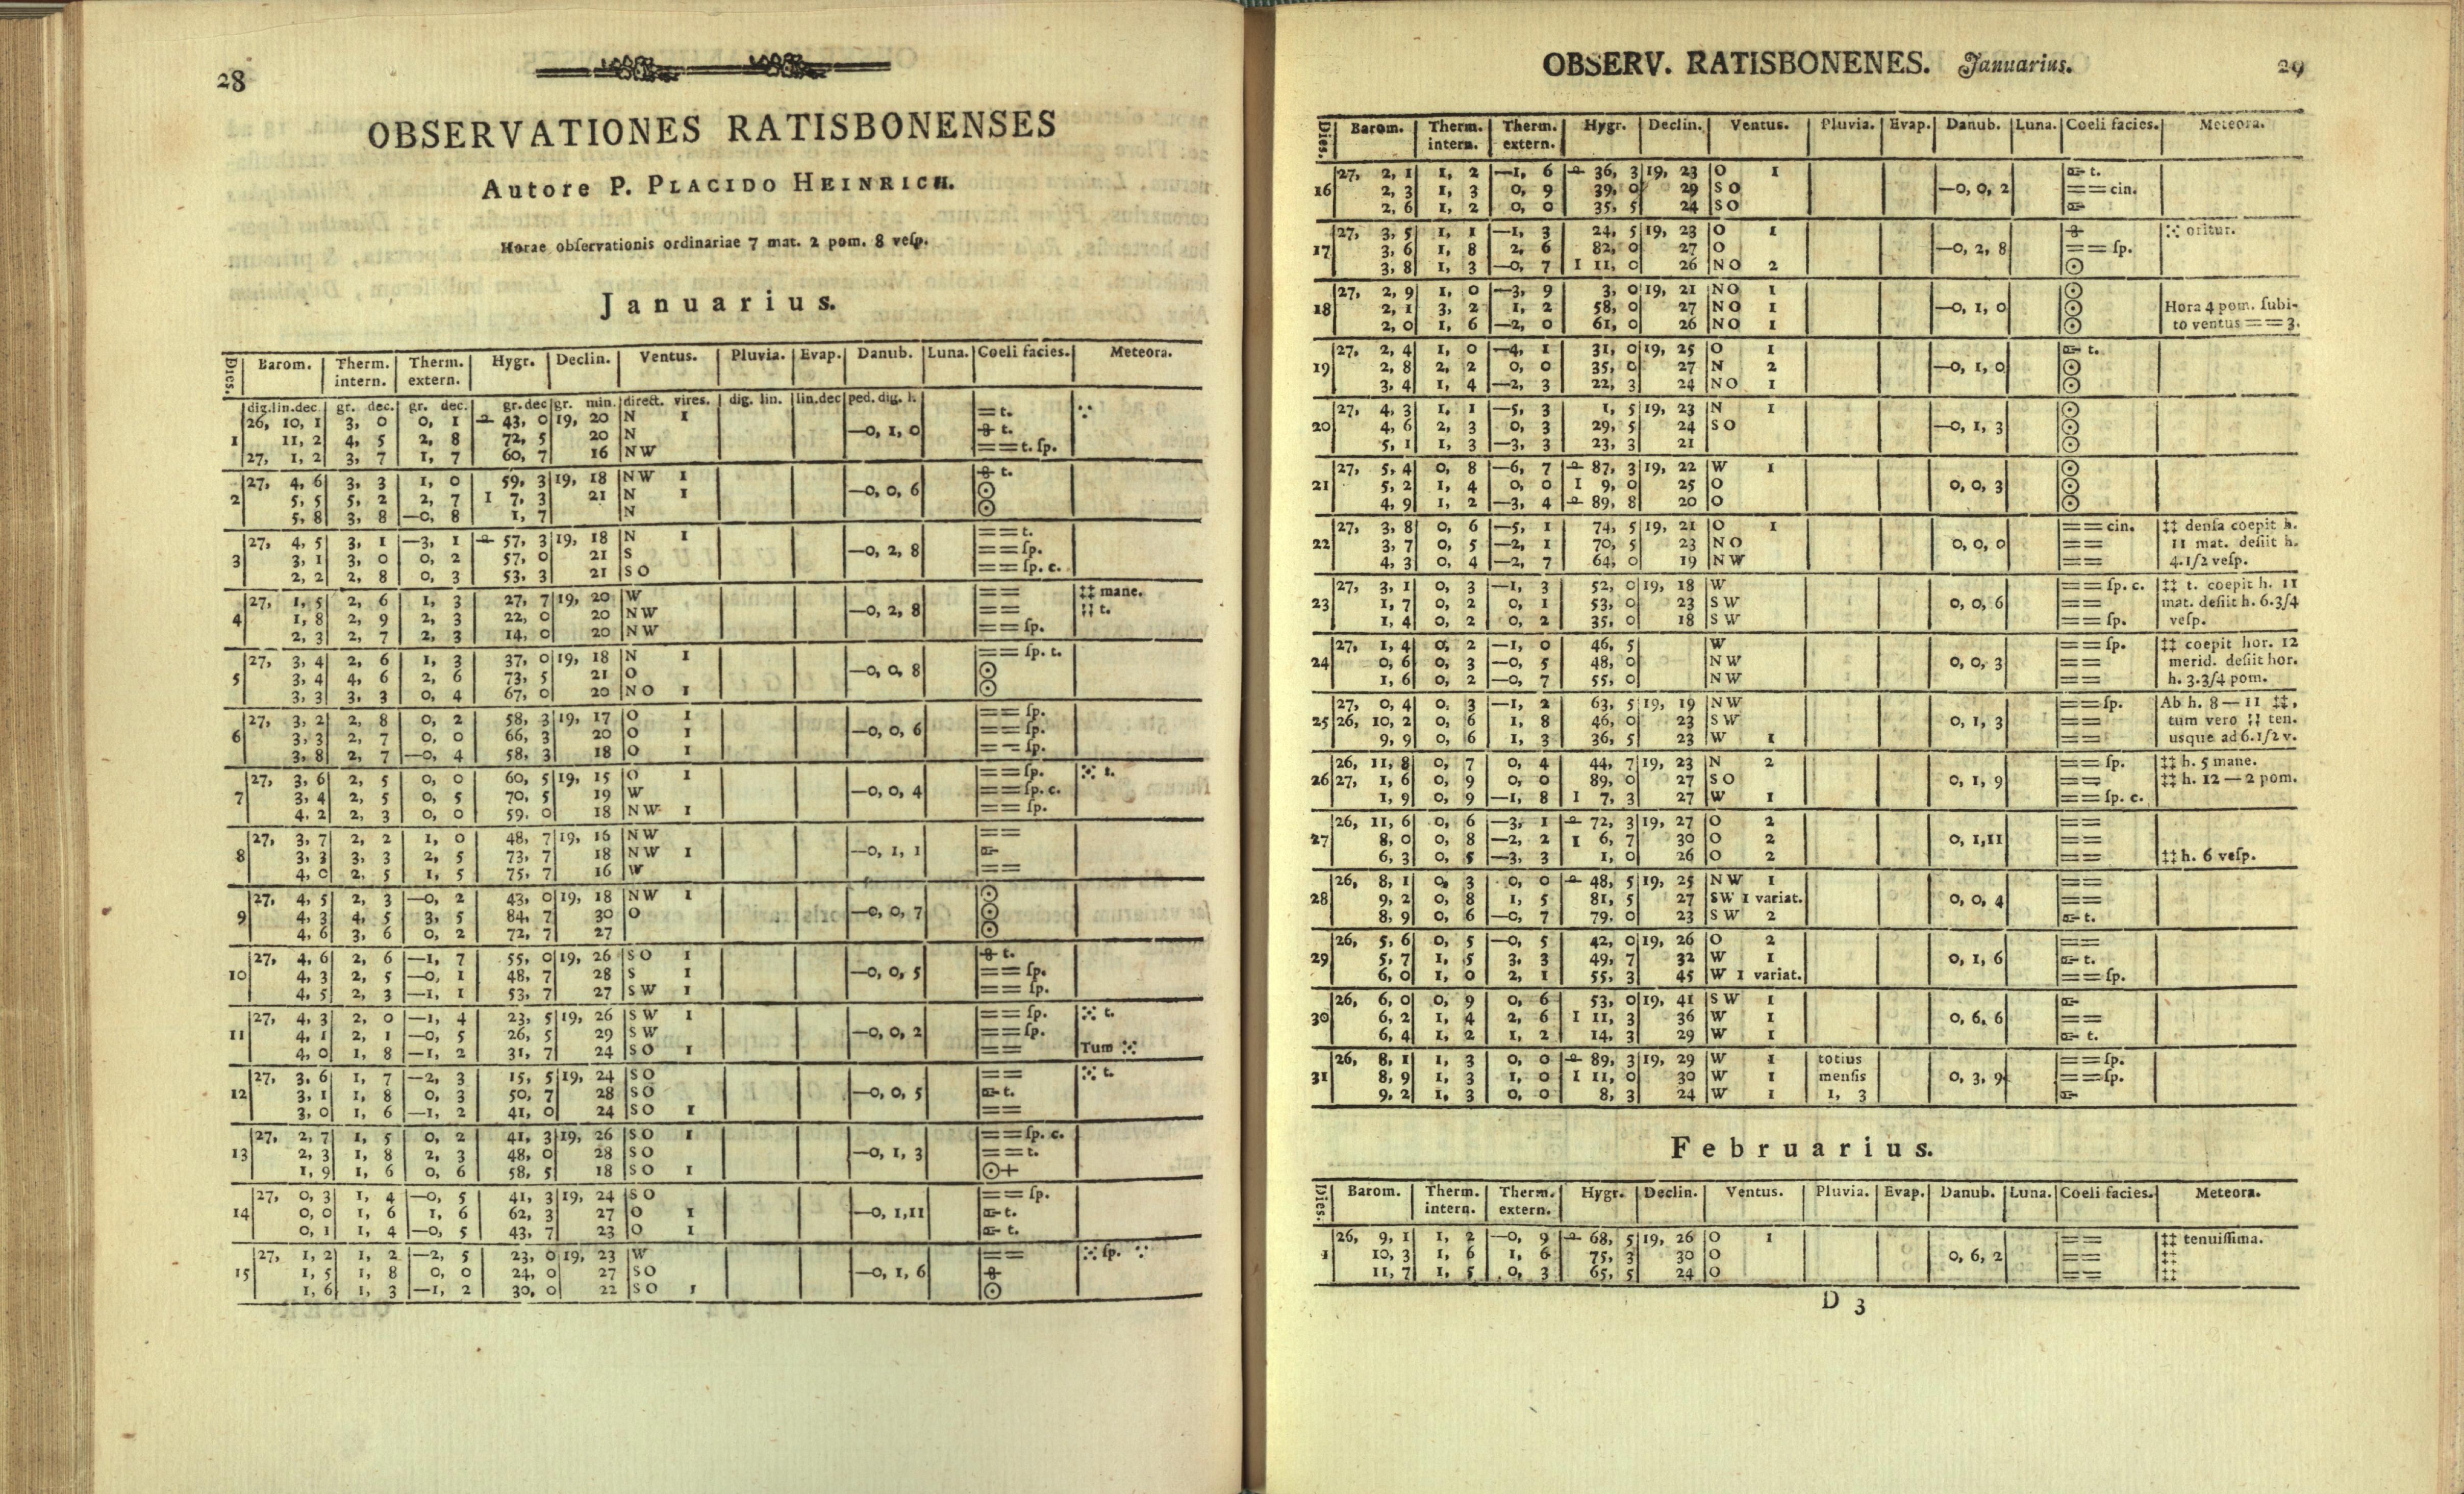 28
OBSERVATIONES RATISBONENSES
Autore P. PLACIDO HEINRICH.
Horae obſervationis ordinariae 7 mat. 2 pom. 8 veſp.
Januarius.
Dies. Barom. Therm. intern. Therm. extern. Hygr. Declin. Ventus. Pluvia. Evap. Danub. Luna. Coeli facies. Meteora.
dig.lin.dec. gr. dec. gr. dec. gr.dec gr. min. direct. vires. dig. lin. lin.dec ped. dig. l.
26, 10, 1 3, 0 0, 1 43, 0 19, 20 N 1 = t. ∵
1 11, 2 4, 5 2, 8 72, 5 20 N —0, 1, 0 t.
27, 1, 2 3, 7 1, 7 60, 7 16 NW == t. ſp.
27, 4, 6 3, 3 1, 0 59, 3 19, 18 NW 1 t.
2 5, 5 5, 2 2, 7 1 7, 3 21 N 1 —0, 0, 6 ☉
5, 8 3, 8 —0, 8 1, 7 N ☉
27, 4, 5 3, 1 —3, 1 57, 3 19, 18 N 1 == t.
3 3, 1 3, 0 0, 2 57, 0 21 S —0, 2, 8 == ſp.
2, 2 2, 8 0, 3 53, 3 21 SO == ſp. c.
27, 1, 5 2, 6 1, 3 27, 7 19, 20 W == ‡‡ mane.
4 1, 8 2, 9 2, 3 22, 0 20 NW —0, 2, 8 == ¦¦ t.
2, 3 2, 7 2, 3 14, 0 20 NW == ſp.
27, 3, 4 2, 6 1, 3 37, 0 19, 18 N 1 == ſp. t.
5 3, 4 4, 6 2, 6 73, 5 21 O —0, 0, 8 ☉
3, 3 3, 3 0, 4 67, 0 20 NO 1 ☉
27, 3, 2 2, 8 0, 2 58, 3 19, 17 O 1 == ſp.
6 3, 3 2, 7 0, 0 66, 3 20 O 1 —0, 0, 6 == ſp.
3, 8 2, 7 —0, 4 58, 3 18 O 1 == ſp.
27, 3, 6 2, 5 0, 0 60, 5 19, 15 O 1 == ſp. ⁙ t.
7 3, 4 2, 5 0, 5 70, 5 19 W —0, 0, 4 == ſp. c.
4, 2 2, 3 0, 0 59, 0 18 NW 1 == ſp.
27, 3, 7 2, 2 1, 0 48, 7 19, 16 NW ==
8 3, 3 3, 3 2, 5 73, 7 18 NW 1 —0, 1, 1
4, 0 2, 5 1, 5 75, 7 16 W ==
27, 4, 5 2, 3 —0, 2 43, 0 19, 18 NW 1 ☉
9 4, 3 4, 5 3, 5 84, 7 30 O —0, 0, 7 ☉
4, 6 3, 6 0, 2 72, 7 27 ☉
27, 4, 6 2, 6 —1, 7 55, 0 19, 26 SO 1 t.
10 4, 3 2, 5 —0, 1 48, 7 28 S 1 —0, 0, 5 == ſp.
4, 5 2, 3 —1, 1 53, 7 27 SW 1 == ſp.
27, 4, 3 2, 0 —1, 4 23, 5 19, 26 SW 1 == ſp. ⁙ t.
11 4, 1 2, 1 —0, 5 26, 5 29 SW —0, 0, 2 == ſp.
4, 0 1, 8 —1, 2 31, 7 24 SO 1 == Tum ⁙
27, 3, 6 1, 7 —2, 3 15, 5 19, 24 SO == ⁙ t.
12 3, 1 1, 8 0, 3 50, 7 28 SO —0, 0, 5 t.
3, 0 1, 6 —1, 2 41, 0 24 SO 1 ==
27, 2, 7 1, 5 0, 2 41, 3 19, 26 SO 1 == ſp. c.
13 2, 3 1, 8 2, 3 48, 0 28 SO —0, 1, 3 == t.
1, 9 1, 6 0, 6 58, 5 18 SO 1 ☉+
27, 0, 3 1, 4 —0, 5 41, 3 19, 24 SO == ſp.
14 0, 0 1, 6 1, 6 62, 3 27 O 1 —0, 1,11 t.
0, 1 1, 4 —0, 5 43, 7 23 O 1 t.
27, 1, 2 1, 2 —2, 5 23, 0 19, 23 W == ⁙ ſp. ∵
15 1, 5 1, 8 0, 0 24, 0 27 SO —0, 1, 6
1, 6 1, 3 —1, 2 30, 0 22 SO 1 ☉
OBSERV. RATISBONENES. Januarius. 29
Dies. Barom. Therm. intern. Therm. extern. Hygr. Declin. Ventus. Pluvia. Evap. Danub. Luna. Coeli facies. Meteora.
27, 2, 1 1, 2 —1, 6 36, 3 19, 23 O 1 t.
16 2, 3 1, 3 0, 9 39, 0 29 SO —0, 0, 2 == cin.
2, 6 1, 2 0, 0 35, 5 24 SO
27, 3, 5 1, 1 —1, 3 24, 5 19, 23 O 1 ⁙ oritur.
17 3, 6 1, 8 2, 6 82, 0 27 O —0, 2, 8 == ſp.
3, 8 1, 3 —0, 7 1 11, 0 26 NO 2 ☉
27, 2, 9 1, 0 —3, 9 3, 0 19, 21 NO 1 ☉
18 2, 1 3, 2 1, 2 58, 0 27 NO 1 —0, 1, 0 ☉ Hora 4 pom. ſubi-
2, 0 1, 6 —2, 0 61, 0 26 NO 1 ☉ to ventus == 3.
27, 2, 4 1, 0 —4, 1 31, 0 19, 25 O 1 t.
19 2, 8 2, 2 0, 0 35, 0 27 N 2 —0, 1, 0 ☉
3, 4 1, 4 —2, 3 22, 3 24 NO 1 ☉
27, 4, 3 1, 1 —5, 3 1, 5 19, 23 N 1 ☉
20 4, 6 2, 3 0, 3 29, 5 24 SO —0, 1, 3 ☉
5, 1 1, 3 —3, 3 23, 3 21 ☉
27, 5, 4 0, 8 —6, 7 87, 3 19, 22 W 1 ☉
21 5, 2 1, 4 0, 0 1 9, 0 25 O 0, 0, 3 ☉
4, 9 1, 2 —3, 4 89, 8 20 O ☉
27, 3, 8 0, 6 —5, 1 74, 5 19, 21 O 1 == cin. ‡‡ denſa coepit h.
22 3, 7 0, 5 —2, 1 70, 5 23 NO 0, 0, 0 == 11 mat. deſiit h.
4, 3 0, 4 —2, 7 64, 0 19 NW == 4.1/2 veſp.
27, 3, 1 0, 3 —1, 3 52, 0 19, 18 W == ſp. c. ‡‡ t. coepit h. 11
23 1, 7 0, 2 0, 1 53, 0 23 SW 0, 0, 6 == mat. deſiit h. 6.3/4
1, 4 0, 2 0, 2 35, 0 18 SW == ſp. veſp.
27, 1, 4 0, 2 —1, 0 46, 5 W == ſp. ‡‡ coepit hor. 12
24 0, 6 0, 3 —0, 5 48, 0 NW 0, 0, 3 == merid. deſiit hor.
1, 6 0, 2 —0, 7 55, 0 NW == h. 3.3/4 pom.
27, 0, 4 0, 3 —1, 2 63, 5 19, 19 NW == ſp. Ab h. 8 — 11 ‡‡,
25 26, 10, 2 0, 6 1, 8 46, 0 23 SW 0, 1, 3 == tum vero ¦¦ ten.
9, 9 0, 6 1, 3 36, 5 23 W 1 == usque ad 6.1/2 v.
26, 11, 8 0, 7 0, 4 44, 7 19, 23 N 2 == ſp. ‡‡ h. 5 mane.
26 27, 1, 6 0, 9 0, 0 89, 0 27 SO 0, 1, 9 == ‡‡ h. 12 — 2 pom.
1, 9 0, 9 —1, 8 1 7, 3 27 W 1 == ſp. c.
26, 11, 6 0, 6 —3, 1 72, 3 19, 27 O 2 ==
27 8, 0 0, 8 —2, 2 1 6, 7 30 O 2 0, 1,11 ==
6, 3 0, 5 —3, 3 1, 0 26 O 2 == ‡‡ h. 6 veſp.
26, 8, 1 0, 3 0, 0 48, 5 19, 25 NW 1 ==
28 9, 2 0, 8 1, 5 81, 5 27 SW 1 variat. 0, 0, 4 ==
8, 9 0, 6 —0, 7 79, 0 23 SW 2 t.
26, 5, 6 0, 5 —0, 5 42, 0 19, 26 O 2 ==
29 5, 7 1, 5 3, 3 49, 7 32 W 1 0, 1, 6 t.
6, 0 1, 0 2, 1 55, 3 45 W 1 variat. == ſp.
26, 6, 0 0, 9 0, 6 53, 0 19, 41 SW 1
30 6, 2 1, 4 2, 6 1 11, 3 36 W 1 0, 6, 6 ==
6, 4 1, 2 1, 2 14, 3 29 W 1 t.
26, 8, 1 1, 3 0, 0 89, 3 19, 29 W 1 totius == ſp.
31 8, 9 1, 3 1, 0 1 11, 0 30 W 1 menſis 0, 3, 9 == ſp.
9, 2 1, 3 0, 0 8, 3 24 W 1 1, 3
Februarius.
Dies. Barom. Therm. intern. Therm. extern. Hygr. Declin. Ventus. Pluvia. Evap. Danub. Luna. Coeli facies. Meteora.
26, 9, 1 1, 2 —0, 9 68, 5 19, 26 O 1 == ‡‡ tenuiſſima.
1 10, 3 1, 6 1, 6 75, 3 30 O 0, 6, 2 == ‡‡
11, 7 1, 5 0, 3 65, 5 24 O == ‡‡
D 3